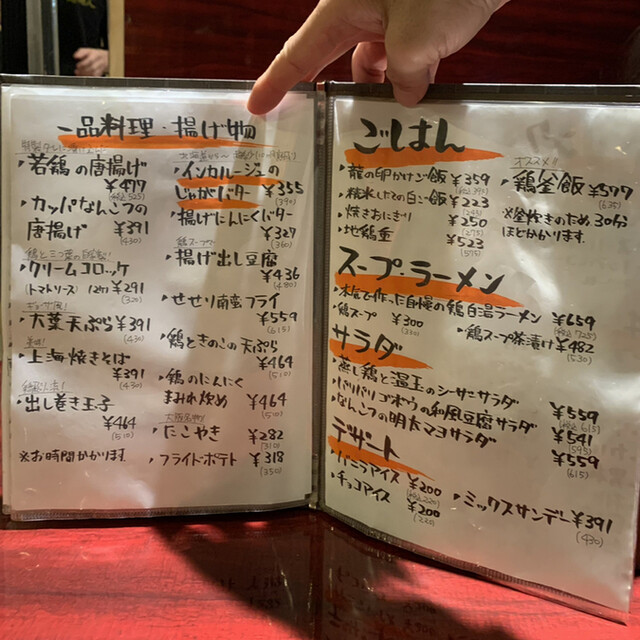 一品料理・揚げ物
・若鶏の唐揚げ
¥477
(税込525)
・カッパなんこつの
唐揚げ ¥391
(430)
・クリームコロッケ
(トマトソース) 1コ ¥291
(320)
・大葉天ぷら ¥391
(430)
・上海焼きそば
¥391
(430)
・出し巻き玉子
¥464
(510)
※お時間かかります
・インカルージュの
じゃがバター ¥355
(390)
・揚げにんにくバター
¥327
(360)
鶏スープで
・揚げ出し豆腐
¥436
(480)
・せせり南蛮フライ
¥559
(615)
・鶏ときのこの天ぷら
¥464
(510)
・鶏のにんにく
まみれ炒め ¥464
(510)
大阪名物!
・たこやき ¥282
(310)
・フライドポテト ¥318
(350)
ごはん
・龍の卵かけご飯 ¥359
(税込395)
・精米したての白ご飯 ¥223
(245)
・焼きおにぎり ¥250
(275)
・地鶏重 ¥523
(575)
オススメ!!
・鶏釜飯 ¥577
(635)
※釜炊きのため30分
ほどかかります。
スープ・ラーメン
・本気で作った自慢の鶏白湯ラーメン ¥659
(税込725)
・鶏スープ ¥300
(330)
・鶏スープ茶漬け ¥482
(530)
サラダ
・蒸し鶏と温玉のシーザーサラダ ¥559
(税込615)
・パリパリゴボウの和風豆腐サラダ ¥541
(595)
・なんこつの明太マヨサラダ ¥559
(615)
デザート
・バニラアイス ¥200
(税込220)
・チョコアイス ¥200
(220)
・ミックスサンデー ¥391
(430)